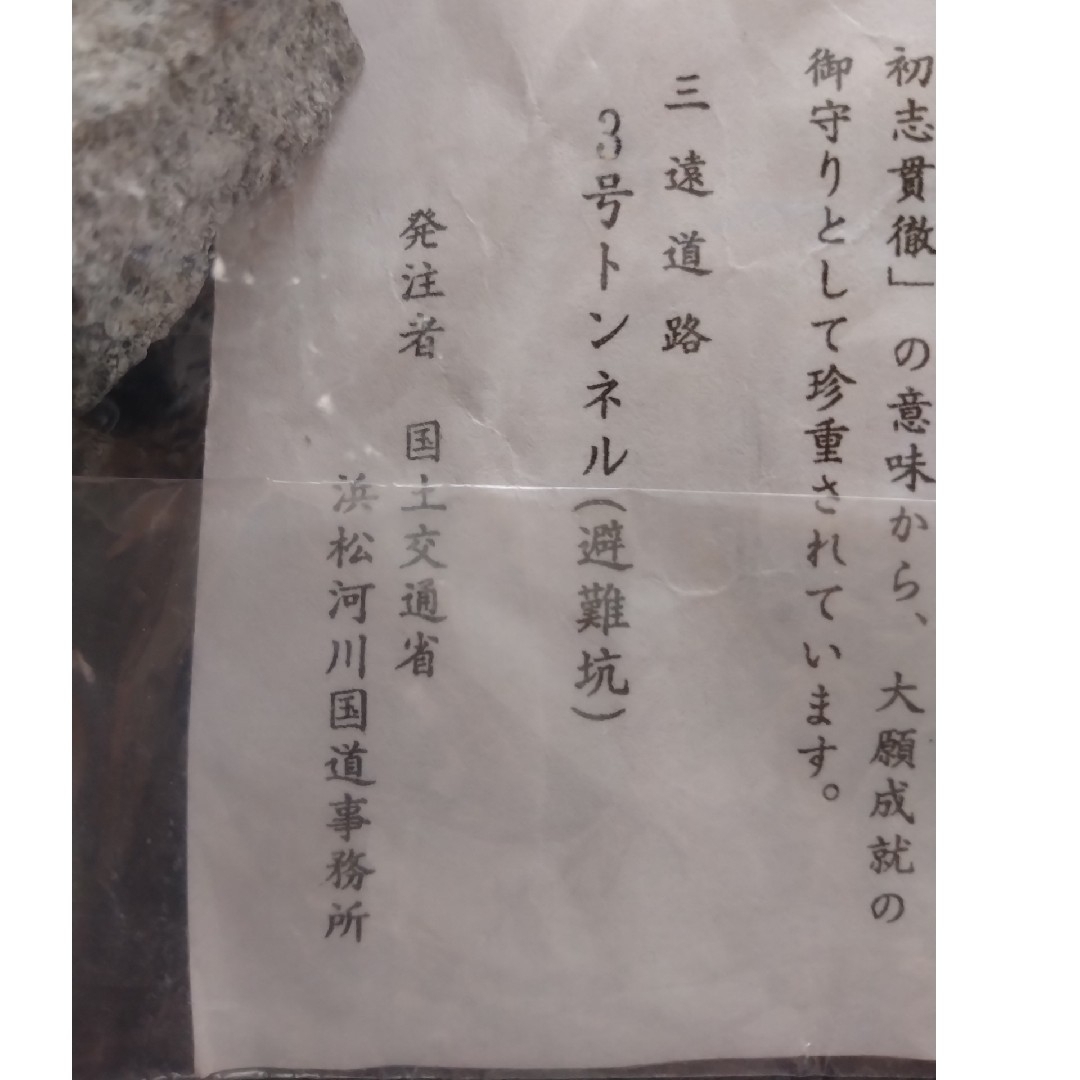 初志貫徹」の意味から、大願成就の
御守りとして珍重されています。
三遠道路
3号トンネル(避難坑)
発注者　国土交通省
浜松河川国道事務所